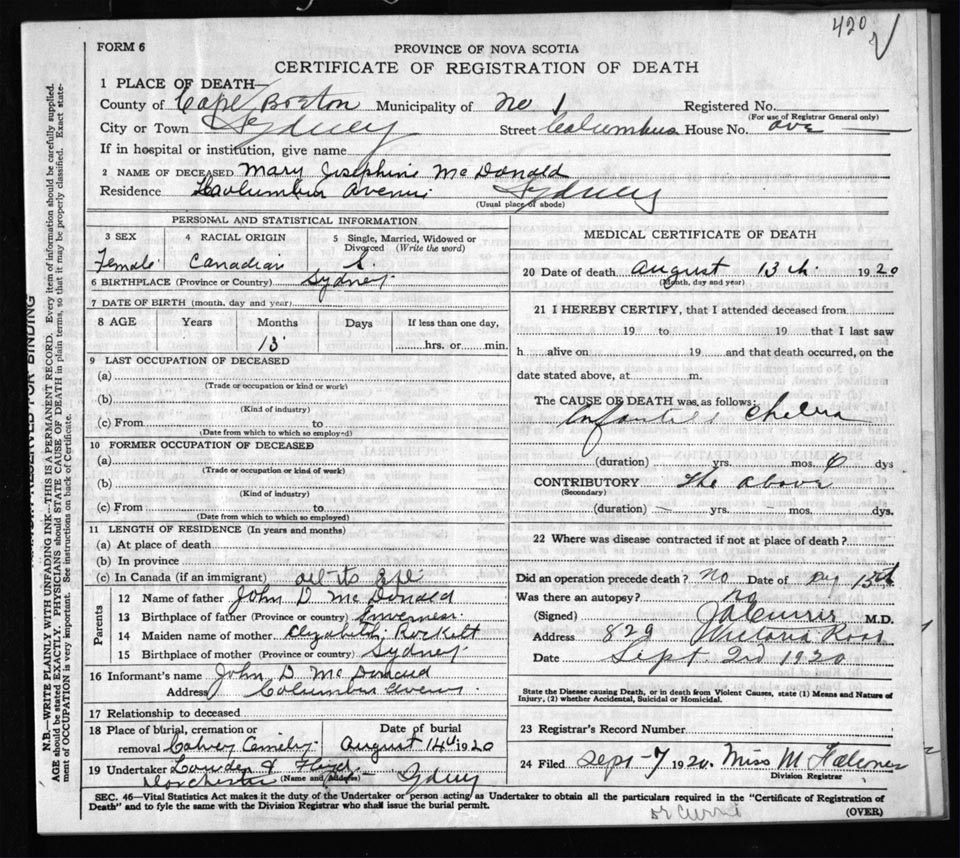 420
FORM 6
PROVINCE OF NOVA SCOTIA
CERTIFICATE OF REGISTRATION OF DEATH
1 PLACE OF DEATH—
County of Cape Breton Municipality of No 1 Registered No.
(For use of Registrar General only)
City or Town Sydney Street Columbus House No. ave
If in hospital or institution, give name
2 NAME OF DECEASED Mary Josephine McDonald
Residence Columbus Avenue Sydney
(Usual place of abode)
PERSONAL AND STATISTICAL INFORMATION
3 SEX 4 RACIAL ORIGIN 5 Single, Married, Widowed or Divorced (Write the word)
Female Canadian S.
6 BIRTHPLACE (Province or Country) Sydney
7 DATE OF BIRTH (month, day and year)
8 AGE Years Months Days If less than one day,
13 hrs. or min.
9 LAST OCCUPATION OF DECEASED
(a)
(Trade or occupation or kind or work)
(b)
(Kind of industry)
(c) From to
(Date from which to which so employed)
10 FORMER OCCUPATION OF DECEASED
(a)
(Trade or occupation or kind of work)
(b)
(Kind of industry)
(c) From to
(Date from which to which so employed)
11 LENGTH OF RESIDENCE (In years and months)
(a) At place of death
(b) In province
(c) In Canada (if an immigrant) all its
Parents
12 Name of father John D McDonald
13 Birthplace of father (Province or country) Inverness
14 Maiden name of mother Elizabeth
15 Birthplace of mother (Province or country) Sydney
16 Informant's name John D McDonald
Address Columbus Avenue
17 Relationship to deceased
18 Place of burial, cremation or Date of burial
removal August 14th 1920
19 Undertaker Lowden &
Dorchester (Name and Address) Sydney
MEDICAL CERTIFICATE OF DEATH
20 Date of death August 13th 1920
(Month, day and year)
21 I HEREBY CERTIFY, that I attended deceased from
19 to 19 that I last saw
h alive on 19 and that death occurred, on the
date stated above, at m.
The CAUSE OF DEATH was as follows:
Chelera
(duration) yrs. mos. dys
CONTRIBUTORY The above
(Secondary)
(duration) — yrs. — mos. dys.
22 Where was disease contracted if not at place of death?
Did an operation precede death? No Date of 13th
Was there an autopsy? no
(Signed) M.D.
Address 829 Victoria Road
Date Sept. 2nd 1920
State the Disease causing Death, or in death from Violent Causes, state (1) Means and Nature of
Injury, (2) whether Accidental, Suicidal or Homicidal.
23 Registrar's Record Number
24 Filed Sept 7 1920. Miss M
Division Registrar
SEC. 46—Vital Statistics Act makes it the duty of the Undertaker or person acting as Undertaker to obtain all the particulars required in the "Certificate of Registration of
Death" and to fyle the same with the Division Registrar who shall issue the burial permit.
(OVER)
N.B.—WRITE PLAINLY WITH UNFADING INK—THIS IS A PERMANENT RECORD. Every item of information should be carefully supplied.
AGE should be stated EXACTLY. PHYSICIANS should STATE CAUSE OF DEATH in plain terms, so that it may be properly classified. Exact state-
ment of OCCUPATION is very important. See instructions on back of Certificate.
RESERVED FOR BINDING